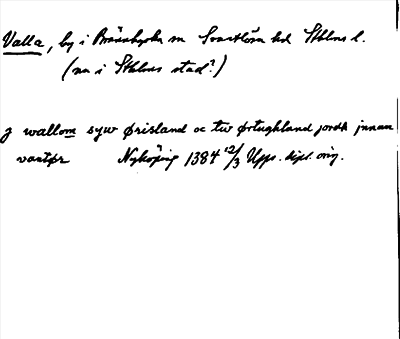 Valla, by i Brännkyrka sn Svartlösa hd Sthlms l.
(nu i Sthlms stad?)
j wallom syw ørisland oc tw ørtughland jordh jnnan
Nyköping 1384 12/3 Upps. dipl. orig.